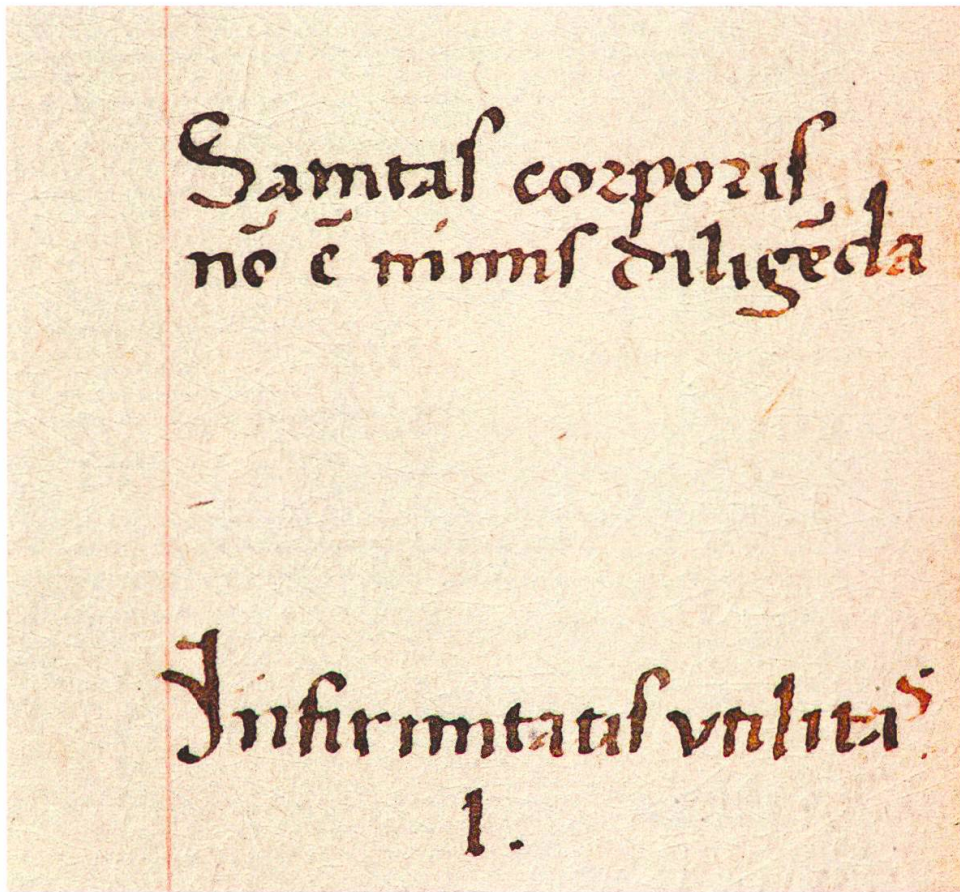 Sanitas corporis
nō ē nimis diligēda
Infirmitatis vtilitas
1.